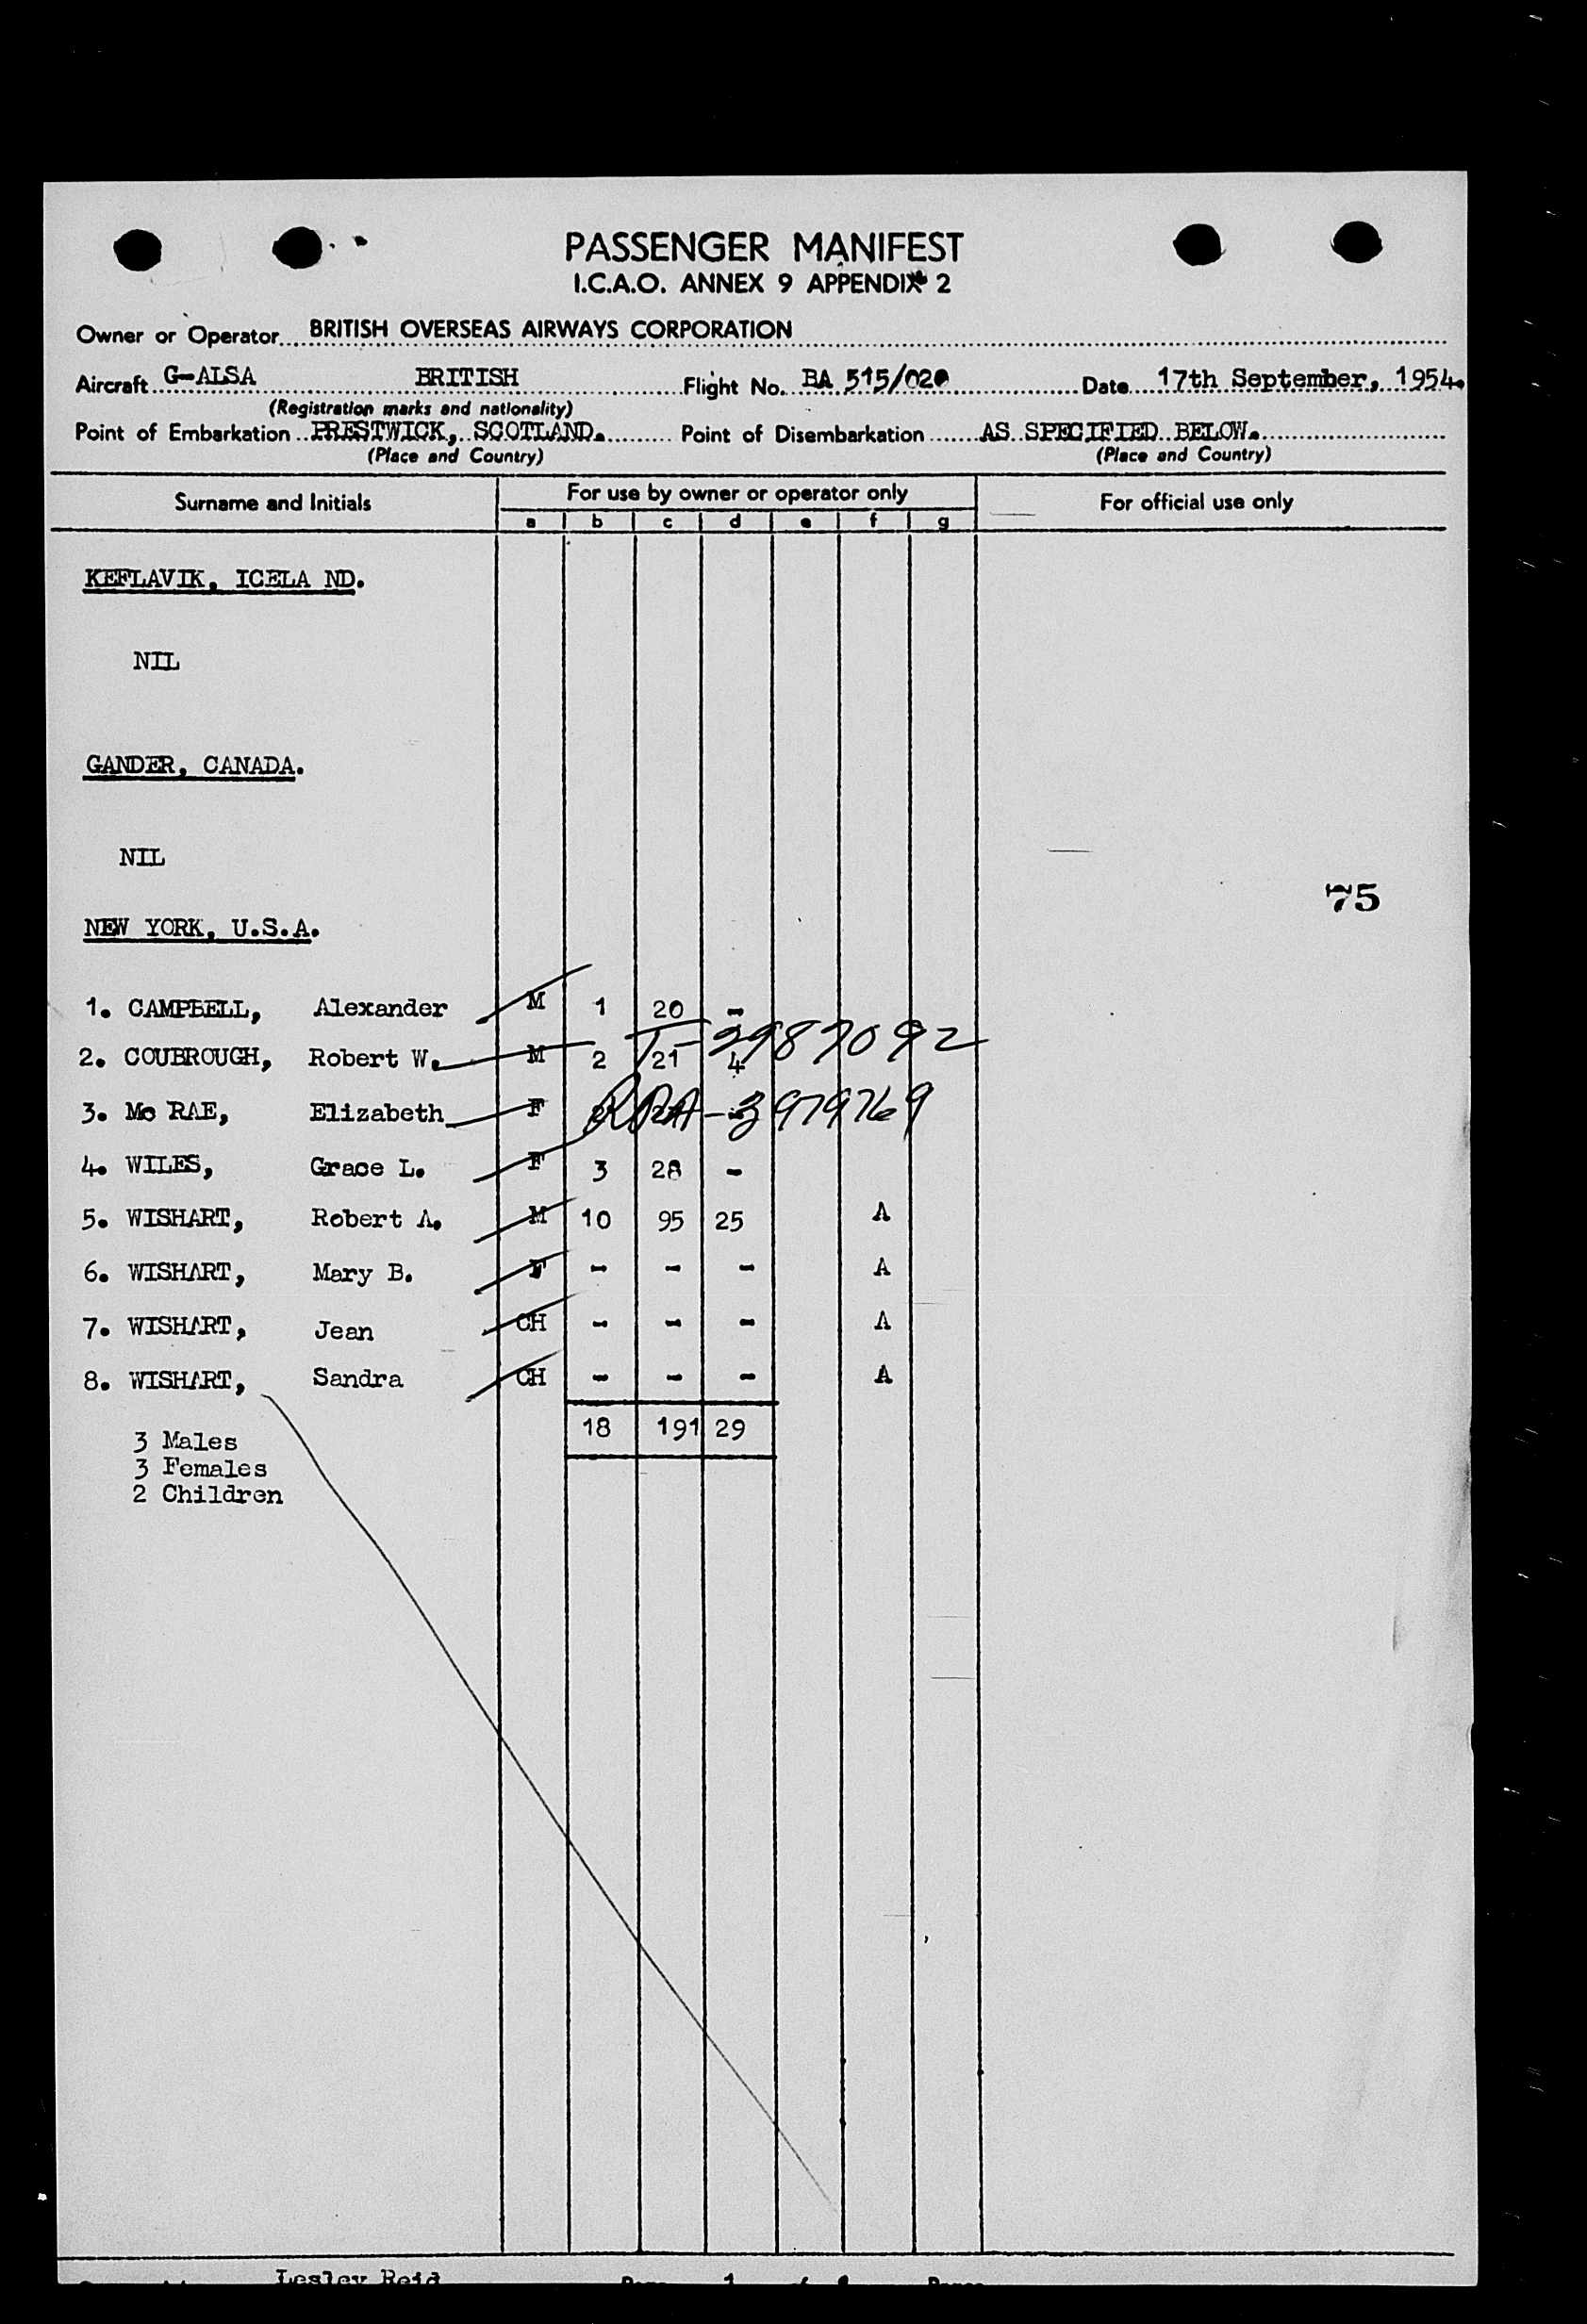 PASSENGER MANIFEST
I.C.A.O. ANNEX 9 APPENDIX 2
Owner or Operator BRITISH OVERSEAS AIRWAYS CORPORATION
Aircraft G-ALSA BRITISH Flight No. BA 515/020 Date 17th September, 1954.
(Registration marks and nationality)
Point of Embarkation PRESTWICK, SCOTLAND. Point of Disembarkation AS SPECIFIED BELOW.
(Place and Country) (Place and Country)
Surname and Initials For use by owner or operator only For official use only
a b c d e f g
KEFLAVIK, ICELA ND.
NIL
GANDER, CANADA.
NIL
75
NEW YORK, U.S.A.
1. CAMPBELL, Alexander M 1 20 -
T-2987092
2. COUBROUGH, Robert W. M 2 21 4
3. Mc RAE, Elizabeth F RRA-3979769
4. WILES, Grace L. F 3 28 -
5. WISHART, Robert A. M 10 95 25 A
6. WISHART, Mary B. F - - - A
7. WISHART, Jean CH - - - A
8. WISHART, Sandra CH - - - A
18 191 29
3 Males
3 Females
2 Children
Lesley Reid Page 1 of Pages